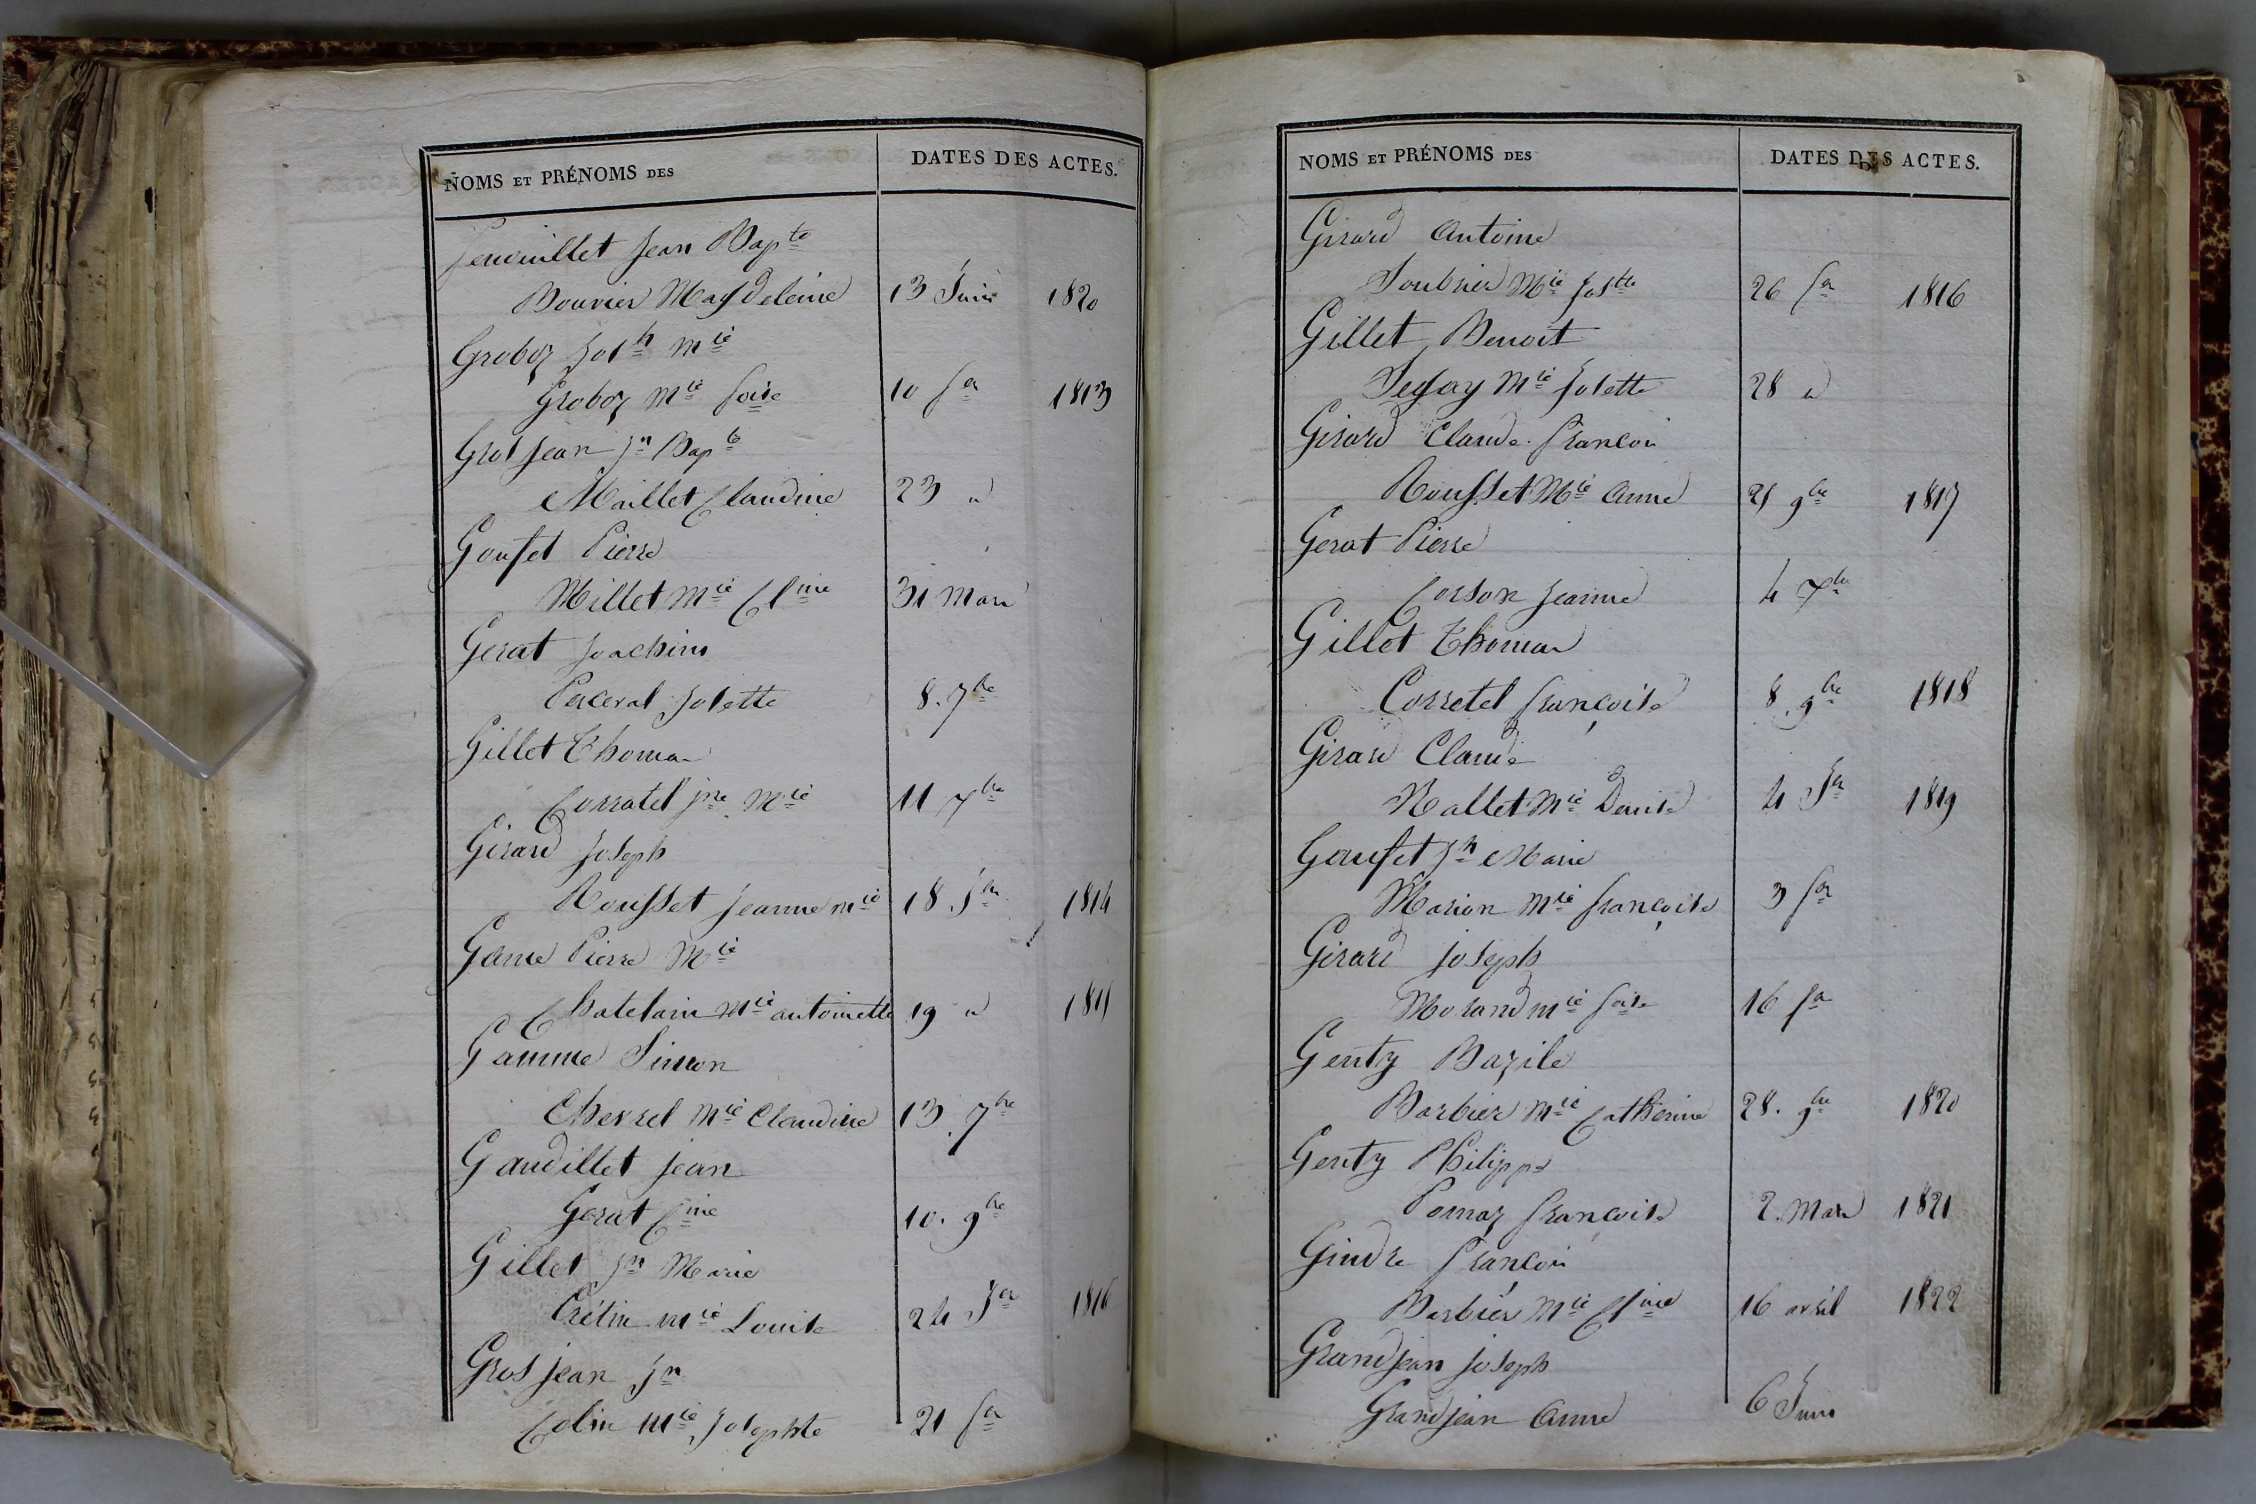 NOMS ET PRÉNOMS DES DATES DES ACTES.
Jean Bapte
Bouvier Magdeleine 13 Juin 1820
Groboz Josh mie
Groboz mie foise 10 fer 1813
Grosjean Jn Bapte
Maillet Claudine 23 d
Goufet Pierre
Millet mie Cline 31 Mars
Gerat Joachim
Perceral Josette 8. 7bre
Gillet Thomas
Corratel jne mie 11 7bre
Girard Joseph
Rousset Jeanne mie 18 Jer 1814
Game Pierre Mie
Chatelain mie antoinette 19 d 1815
Gamme Simon
Chevrel mie Claudine 13 7bre
Gaudillet Jean
Gerat Cine 10. 9bre
Gillet Jn Marie
Crétin mie Louise 24 Jer 1816
Grosjean Jn
Colin mie Josephte 21 fer
NOMS ET PRÉNOMS DES DATES DES ACTES.
Girard Antoine
Soubrier Mie Joste 26 fer 1816
Gillet Benoit
Mie Josette 28 d
Girard Claude francois
Rousset Mie Anne 25 9bre 1817
Gerat Pierre
Corson Jeanne 4 7bre
Gillet Thomas
Corretel françoise 8. 9bre 1818
Girard Claude
Rallet Mie Denise 4 Jer 1819
Goufet Jn Marie
Marion mie françoise 3 fer
Girard Joseph
Morand mie foise 16 fer
Genty Bazile
Barbier mie Catherine 28. 9bre 1820
Genty Philippe
Pernaz françoise 2. Mars 1821
Gindre françois
Barbier Mie Cline 16 avril 1822
Grandjean Joseph
Grandjean Anne 6 Juin